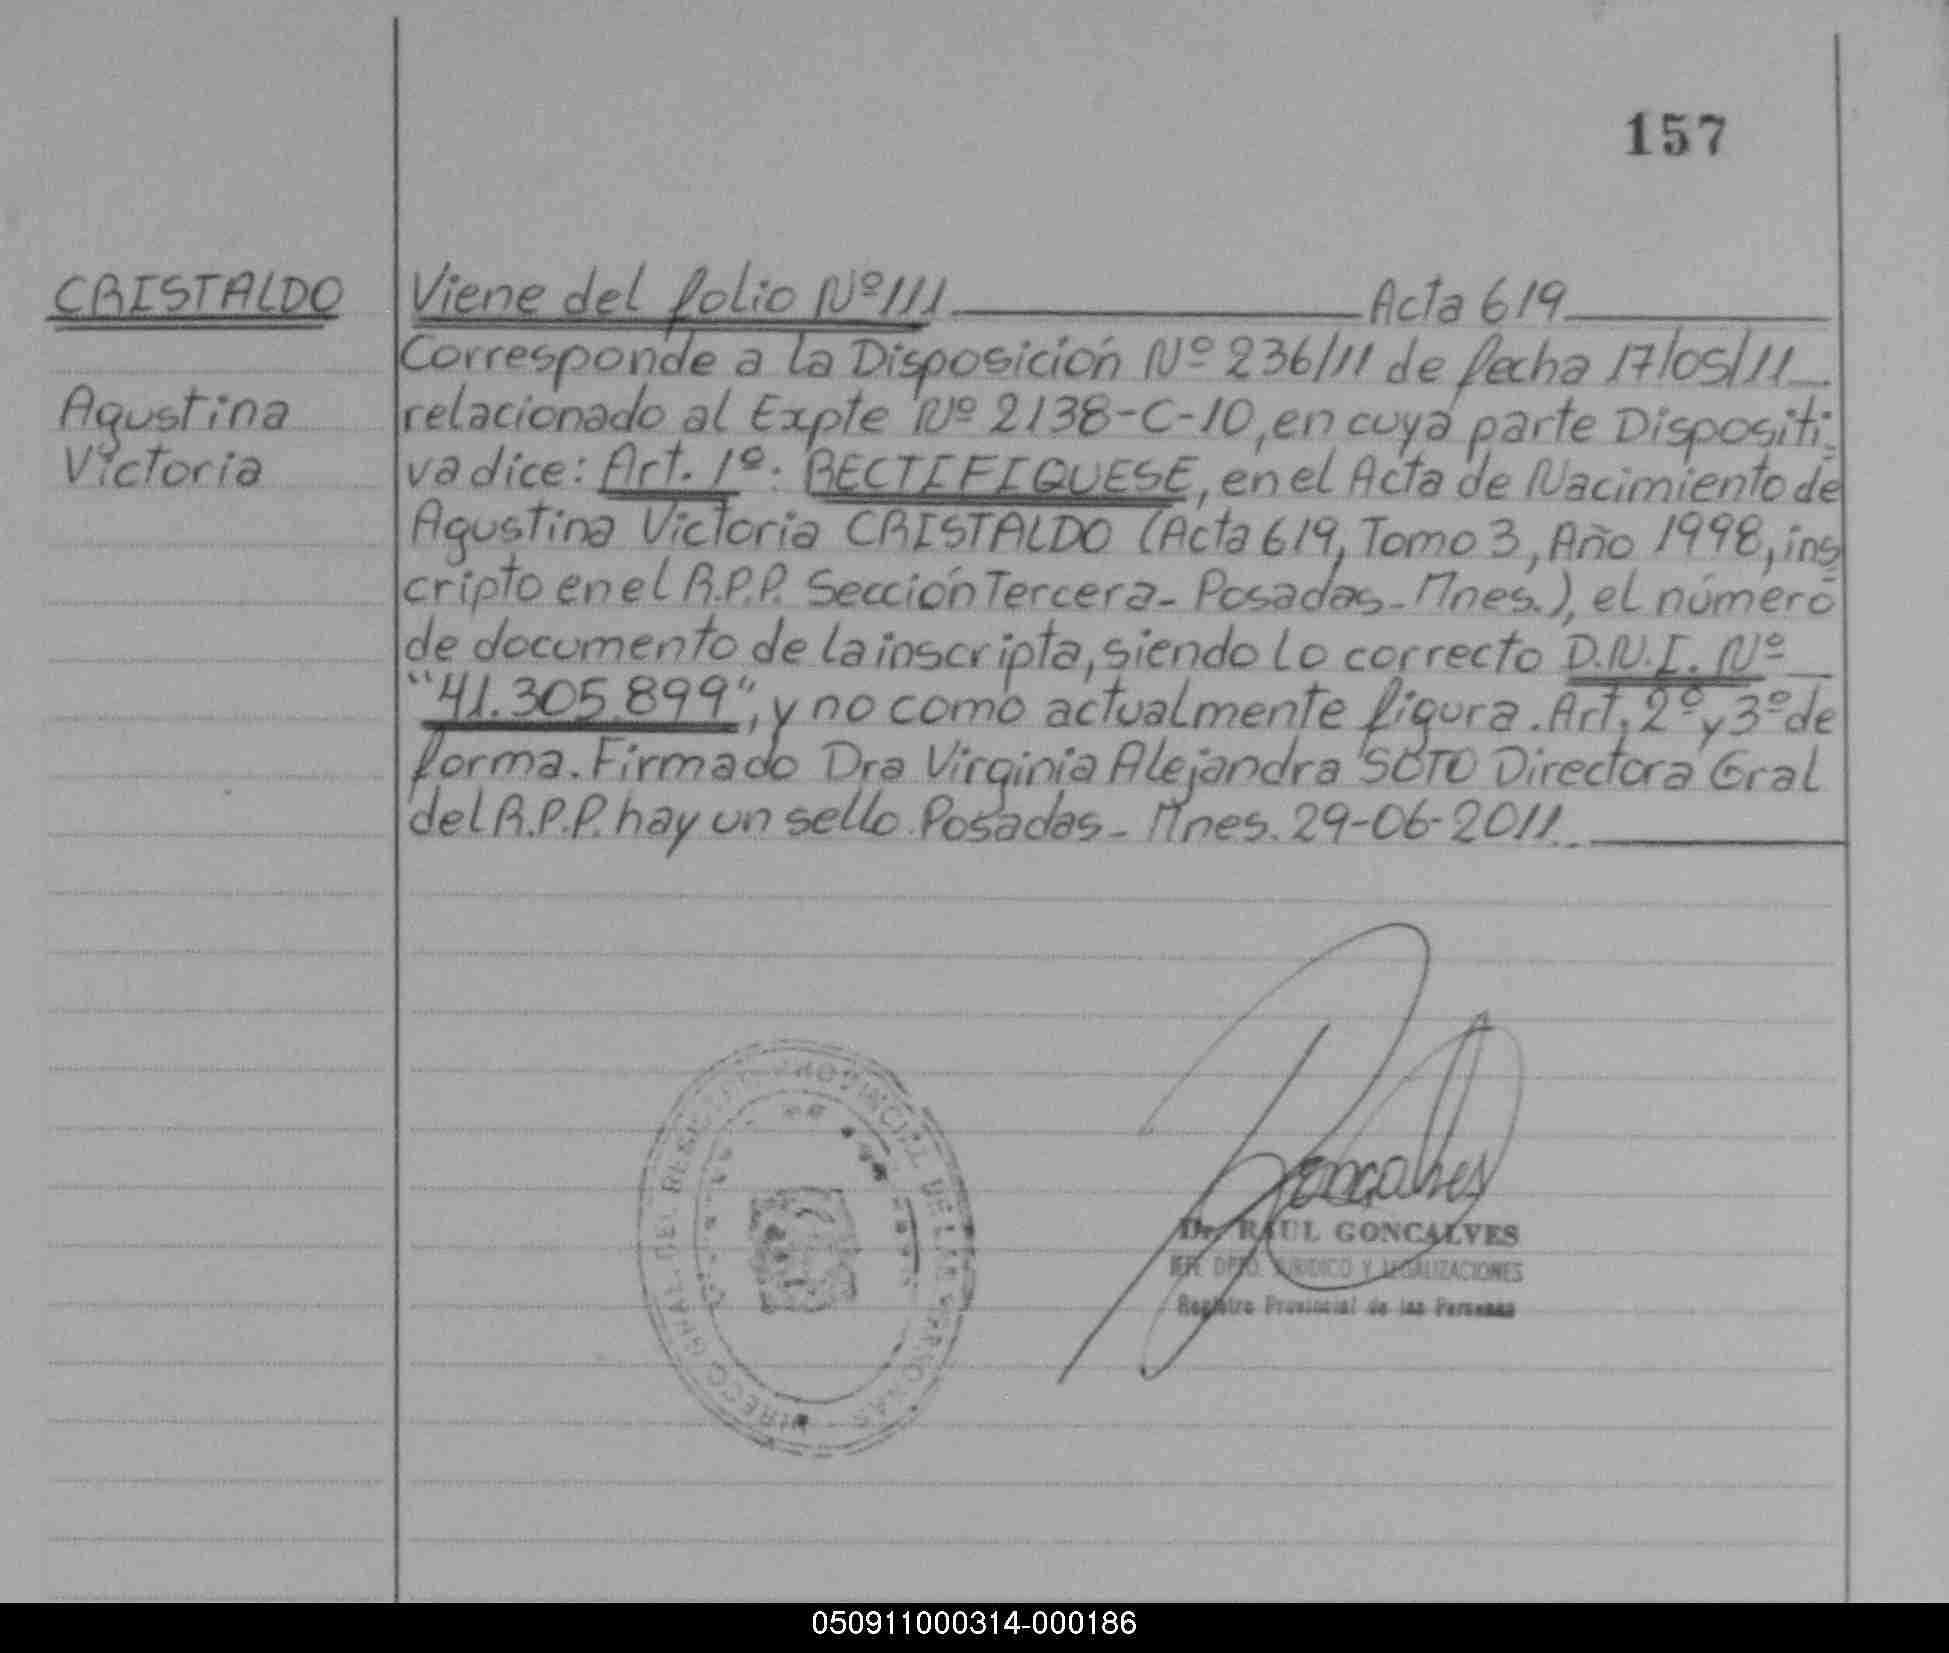 157
CRISTALDO
Agustina
Victoria
Viene del folio Nº 111 Acta 619
Corresponde a la Disposición Nº 236/11 de fecha 17/05/11
relacionado al Expte Nº 2138-C-10, en cuya parte Dispositi
va dice: Art. 1º: RECTIFIQUESE, en el Acta de Nacimiento de
Agustina Victoria CRISTALDO (Acta 619, Tomo 3, Año 1998, ins
cripto en el R.P.P. Sección Tercera - Posadas - Mnes.), el número
de documento de la inscripta, siendo lo correcto D.N.I. Nº
"41.305.899", y no como actualmente figura. Art. 2º y 3º de
forma. Firmado Dra Virginia Alejandra SOTO Directora Gral
del R.P.P. hay un sello. Posadas - Mnes. 29-06-2011.
DIRECC. GRAL. DEL REGISTRO PROVINCIAL DE LAS PERSONAS
Goncalves
Dr. RAUL GONCALVES
JEFE DPTO. JURIDICO Y LEGALIZACIONES
Registro Provincial de las Personas
050911000314-000186